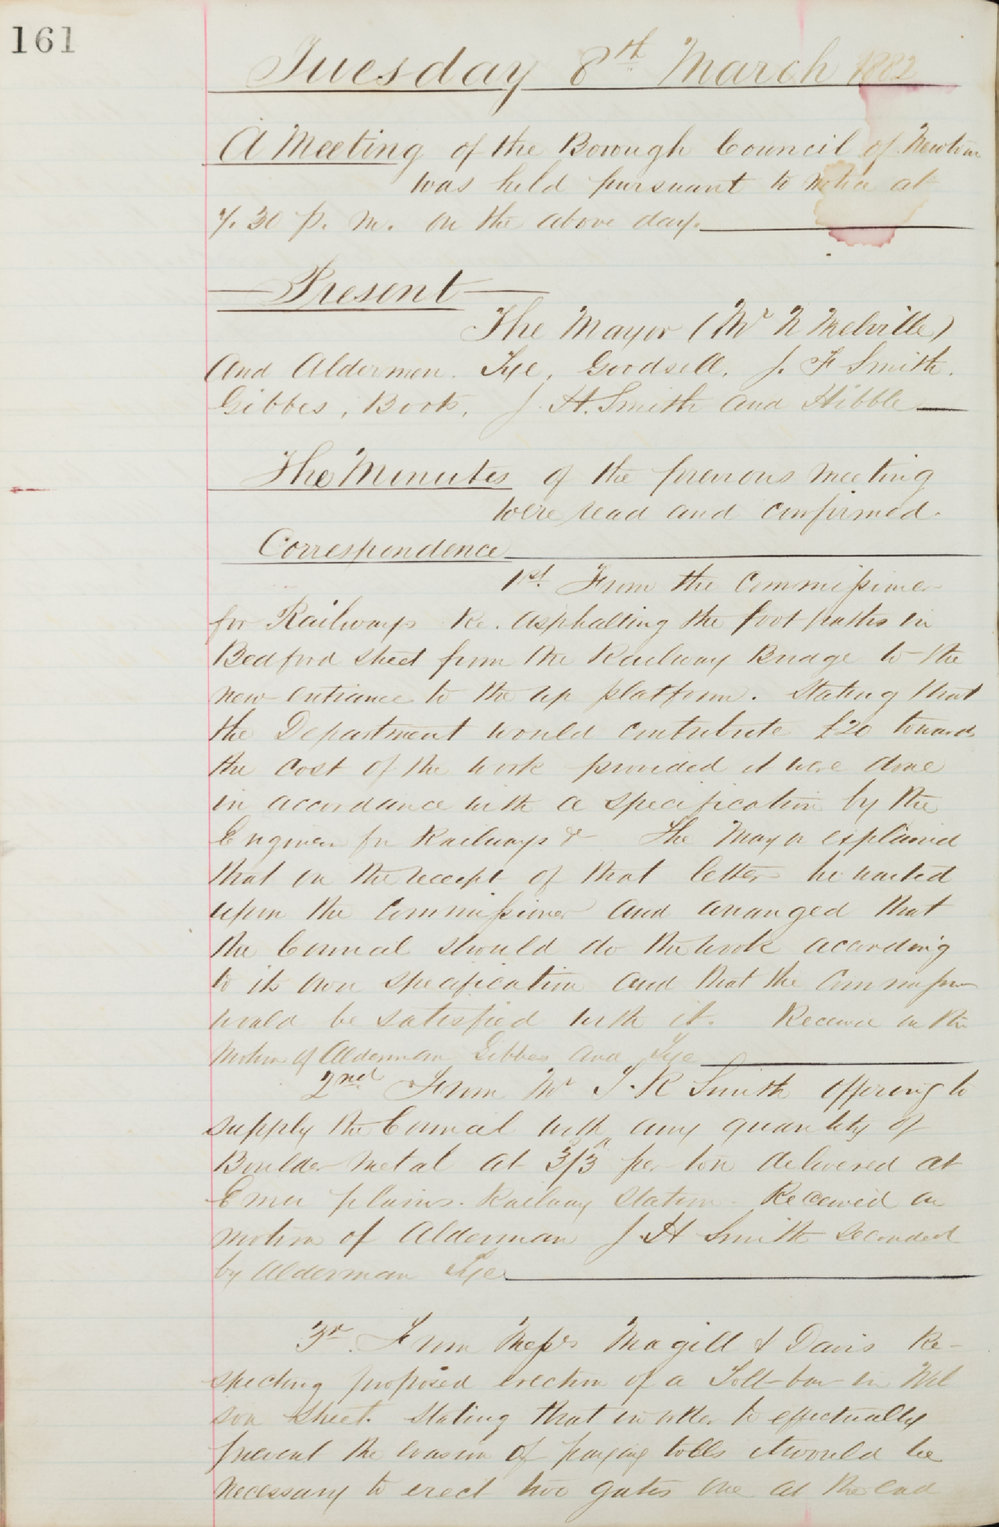 161
Tuesday 8th March 1882
A Meeting of the Borough Council of Newtown
was held pursuant to notice at
7.30 p. m. on the above day.
Present
The Mayor (Mr N Melville)
and Aldermen. Tye, Goodsell, J. F Smith.
Gibbes, Book, J. H. Smith and Hibble
The Minutes of the previous meeting
were read and confirmed.
Correspondence
1st. From the Commissioner
for Railways Re. asphalting the foot paths in
Bedford Street from the Railway Bridge to the
new entrance to the up platform. Stating that
the Department would contribute £20 towards
the cost of the work provided it were done
in accordance with a specification by the
Engineer for Railways & The Mayor explained
that on the receipt of that letter he waited
upon the Commissioner and arranged that
the Council should do the work according
to its own specification and that the Commissioner
would be satisfied with it. Received on the
motion of Alderman Gibbes and Tye
2nd From Mr T. R Smith offering to
supply the Council with any quantity of
Boulder metal at 3/3 per ton delivered at
Emu plains. Railway Station. Received on
motion of Alderman J. H Smith seconded
by Alderman Tye
3r. From Messrs Magill & Davis Re-
specting proposed erection of a Toll-bar in Wil
son Street. Stating that in order to effectually
prevent the evasion of paying tolls it would be
necessary to erect two gates one at the end